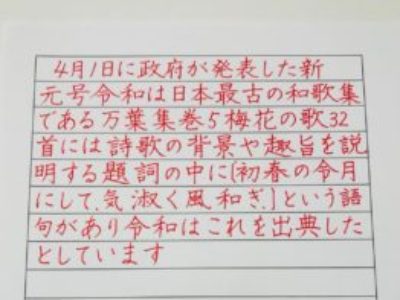 4月1日に政府が発表した新
元号令和は日本最古の和歌集
である万葉集巻5梅花の歌32
首には詩歌の背景や趣旨を説
明する題詞の中に[初春の令月
にして、気淑く風和ぎ、]という語
句があり令和はこれを出典した
としています